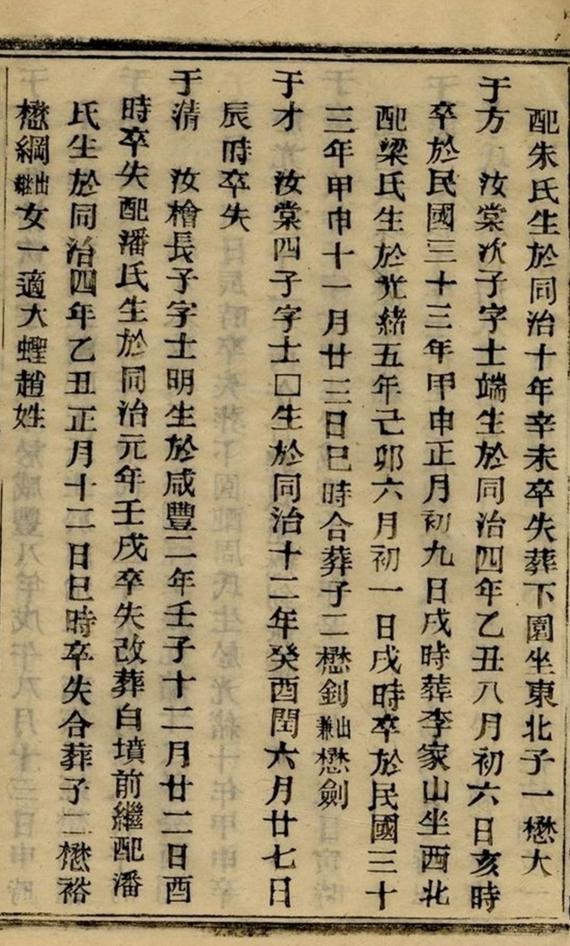 配朱氏生於同治十年辛未卒失葬下園坐東北子一懋大
于方　汝棠次子字士端生於同治四年乙丑八月初六日亥時
卒於民國三十三年甲申正月初九日戌時葬李家山坐西北
配梁氏生於光緒五年己卯六月初一日戌時卒於民國三十
三年甲申十一月廿三日巳時合葬子二懋釗出兼懋劍
于才　汝棠四子字士□生於同治十二年癸酉閏六月廿七日
辰時卒失
于清　汝檜長子字士明生於咸豐二年壬子十二月廿二日酉
時卒失配潘氏生於同治元年壬戌卒失改葬白墳前繼配潘
氏生於同治四年乙丑正月十二日巳時卒失合葬子二懋裕
懋綱出繼女一適大蟶趙姓